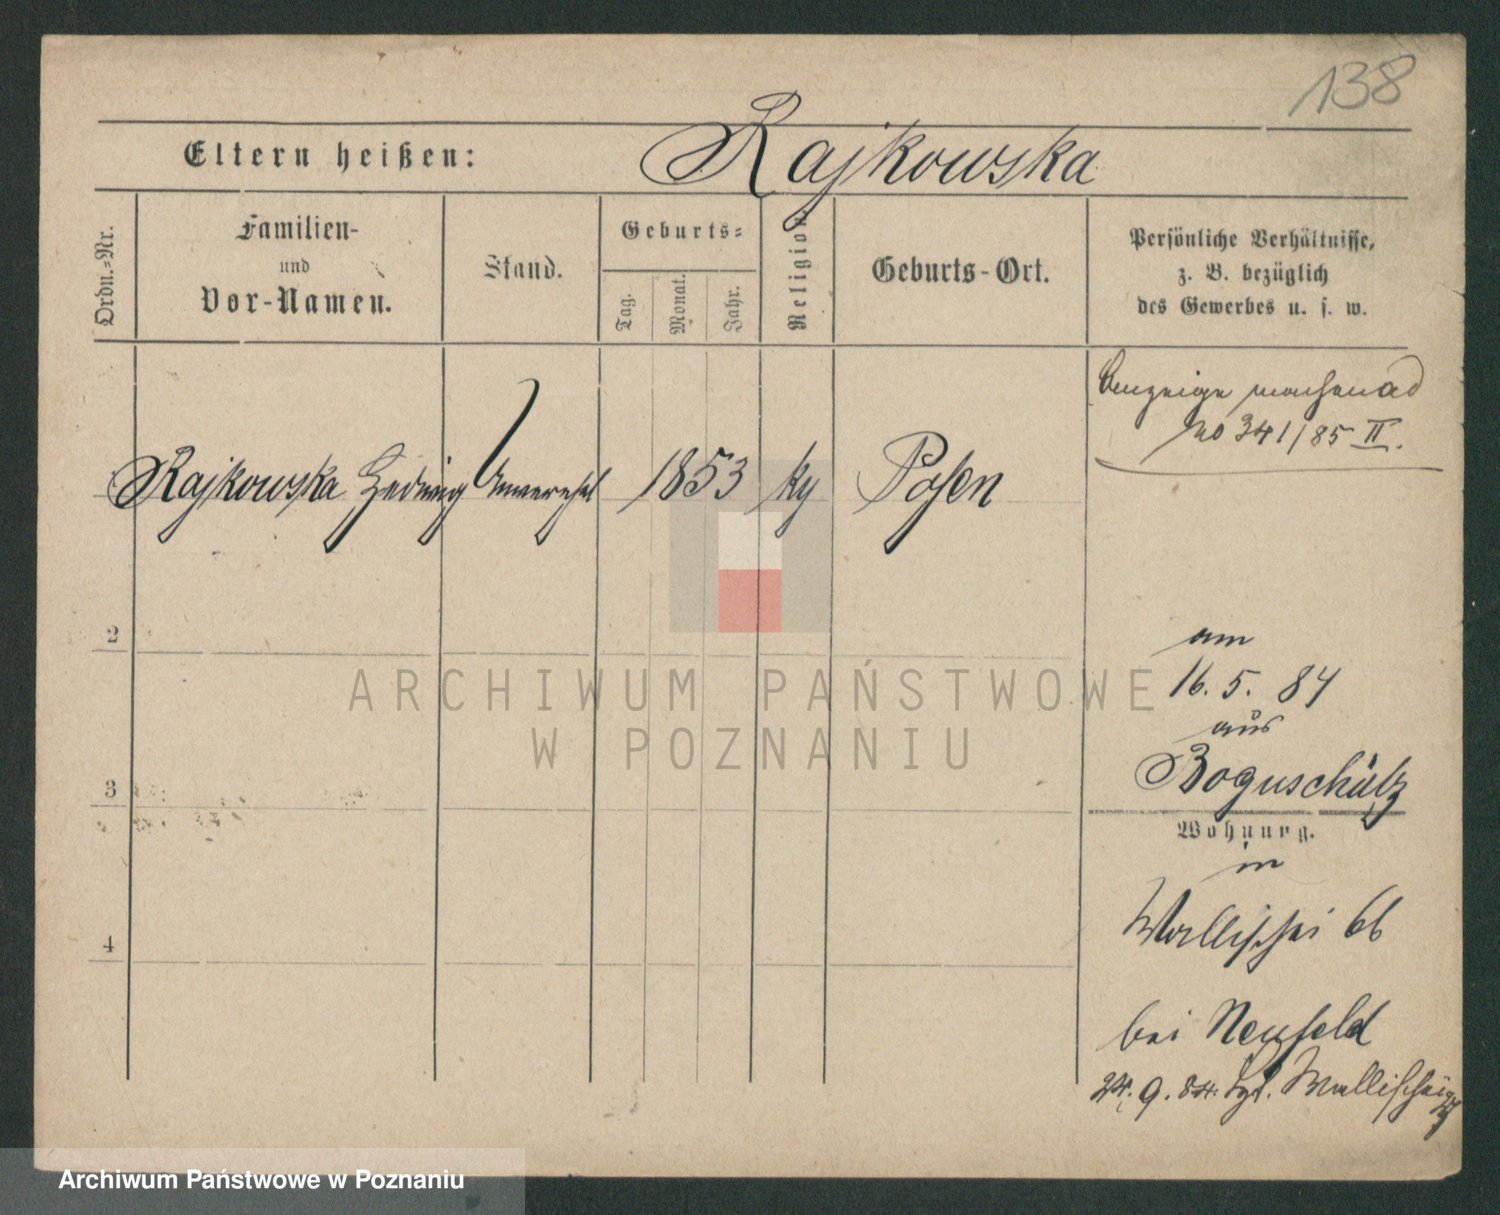 138
Eltern heißen: Rajkowska
Ordn.-Nr.
Familien-
und
Vor-Namen.
Stand.
Geburts-
Tag.
Monat.
Jahr.
Religion
Geburts-Ort.
Persönliche Verhältnisse,
z. B. bezüglich
des Gewerbes u. s. w.
no 341/85 II.
Rajkowska Hedwig unverehel 1853 ky Posen
2
am
16. 5. 84
aus
Boguschütz
3
Wohnung.
in
Wallischei 66
4
bei Neufeld
24. 9. 84.
ARCHIWUM PAŃSTWOWE
W POZNANIU
Archiwum Państwowe w Poznaniu